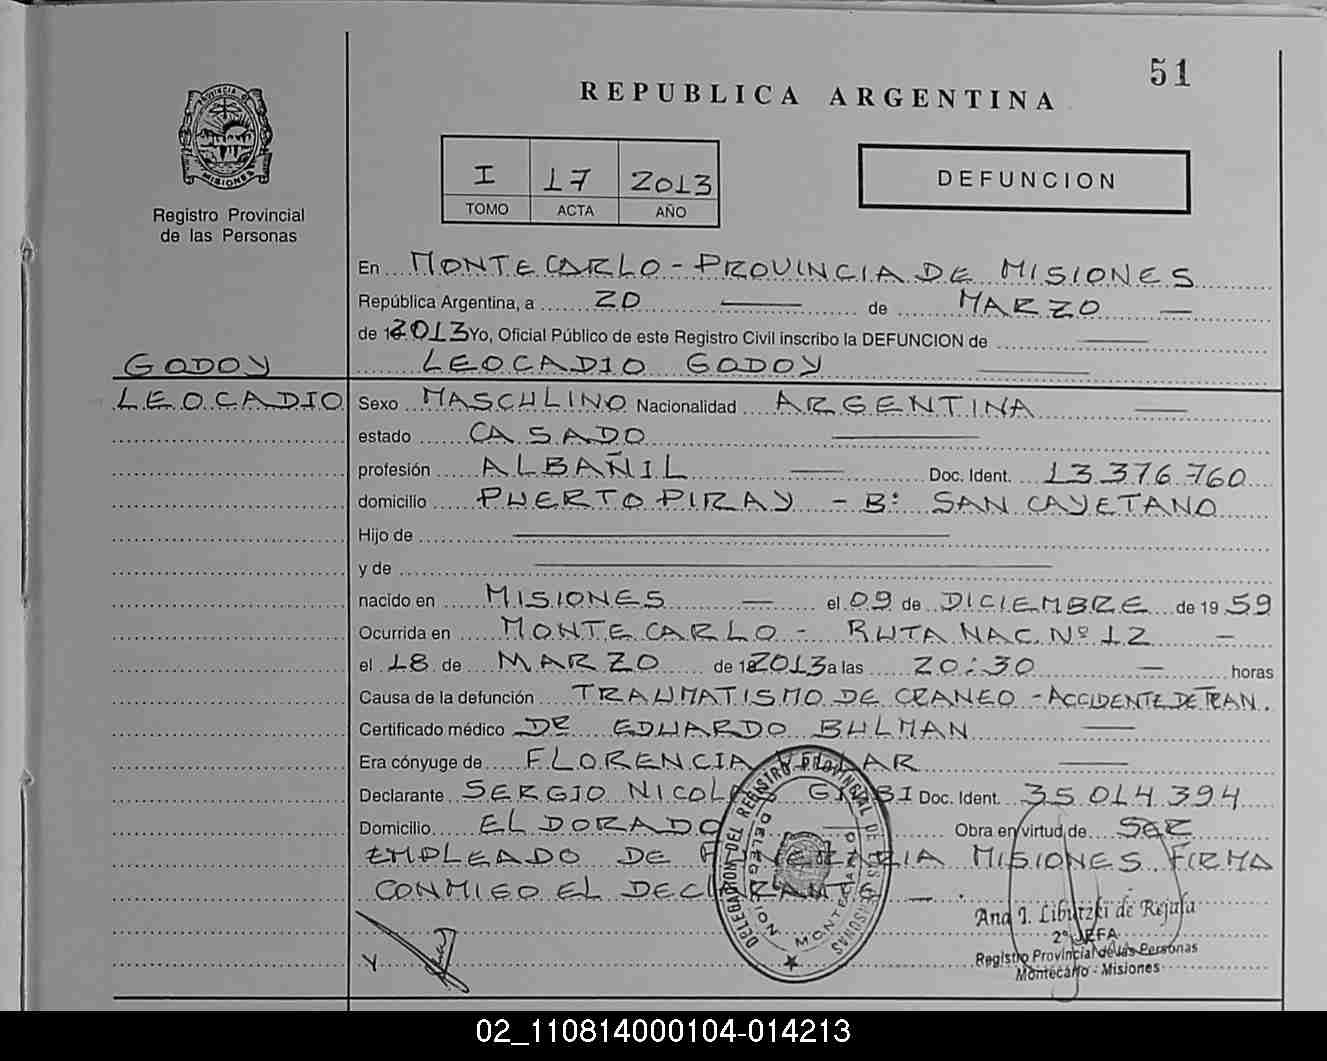 51
REPUBLICA ARGENTINA
PROVINCIA DE
MISIONES
Registro Provincial
de las Personas
I 17 2013
TOMO ACTA AÑO
DEFUNCION
En MONTECARLO - PROVINCIA DE MISIONES
República Argentina, a 20 de MARZO
de 2013 Yo, Oficial Público de este Registro Civil inscribo la DEFUNCION de
GODOY LEOCADIO GODOY
LEOCADIO Sexo MASCULINO Nacionalidad ARGENTINA
estado CASADO
profesión ALBAÑIL Doc. Ident. 13.376.760
domicilio PUERTO PIRAY - Bº SAN CAYETANO
Hijo de
y de
nacido en MISIONES el 09 de DICIEMBRE de 1959
Ocurrida en MONTECARLO - RUTA NAC. Nº 12
el 18 de MARZO de 2013 a las 20:30 horas
Causa de la defunción TRAUMATISMO DE CRANEO - ACCIDENTE DE TRAN.
Certificado médico DR EDUARDO BULMAN
Era cónyuge de FLORENCIA
Declarante SERGIO Doc. Ident. 35.014.394
Domicilio ELDORADO Obra en virtud de SER
EMPLEADO DE MISIONES FIRMA
CONMIGO EL DECLARANTE.
DELEGACION DEL REGISTRO PROVINCIAL DE LAS PERSONAS
DELEGACION MONTECARLO
Ana I. Libutzki de Rejala
2º JEFA
Registro Provincial de las Personas
Montecarlo - Misiones
02_110814000104-014213